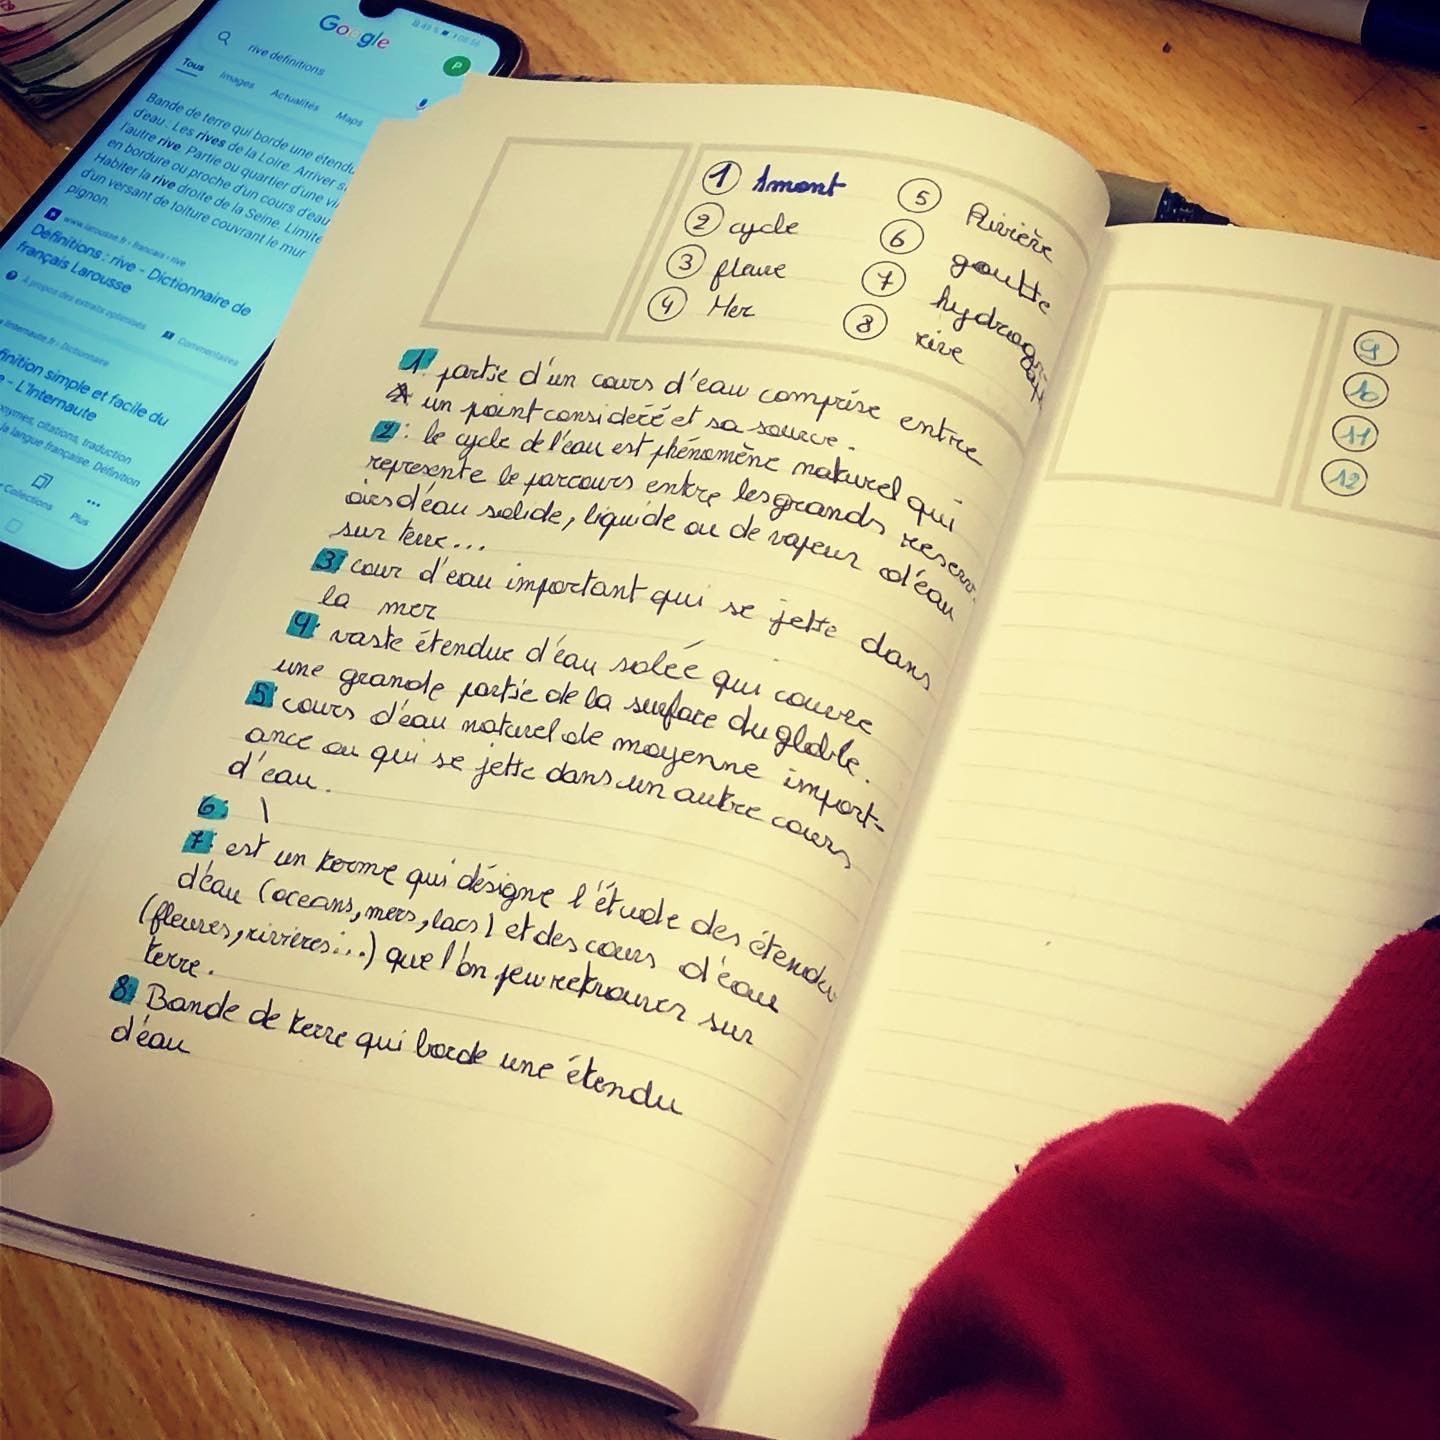 Google
rive definitions
Tous Images Actualités Maps
Bande de terre qui borde une étendu
d'eau : Les rives de la Loire. Arriver s
l'autre rive. Partie ou quartier d'une vi
en bordure ou proche d'un cours d'eau
Habiter la rive droite de la Seine. Limite
d'un versant de toiture couvrant le mur
pignon.
www.larousse.fr › francais › rive
Définitions : rive - Dictionnaire de
français Larousse
À propos des extraits optimisés Commentaires
Internaute.fr › Dictionnaire
finition simple et facile du
e - L'Internaute
onymes, citations, traduction
la langue française. Définition
Collections Plus
1 Amont
2 cycle
3 fleuve
4 Mer
5 Rivière
6 goutte
7 hydrogra
8 rive
1. partie d'un cours d'eau comprise entre
un point consideré et sa source.
2: le cycle de l'eau est phénomène naturel qui
represente le parcours entre les grands reserv
oirs d'eau solide, liquide ou de vapeur d'eau
sur terre...
3: cour d'eau important qui se jette dans
la mer
4: vaste étendue d'eau salée qui couvre
une grande partie de la surface du globle.
5: cours d'eau naturel de moyenne import-
ance ou qui se jette dans un autre cours
d'eau.
6: \
7: est un terme qui désigne l'étude des étendu
d'eau (oceans, mers, lacs) et des cours d'eau
(fleuves, rivières...) que l'on peu retrouver sur
terre.
8: Bande de terre qui borde une étendu
d'eau
9
10
11
12